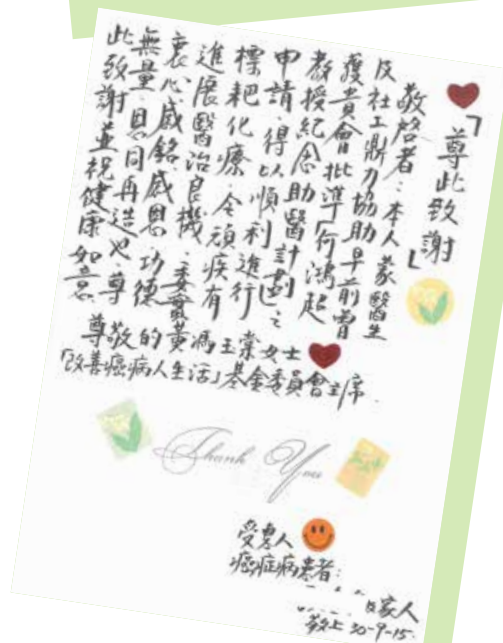 「尊此致謝」
敬啓者：本人蒙醫生
及社工鼎力協助早前曾
獲貴會批準「何鴻超
教授紀念助醫計劃」之
申請，得以順利進行
標耙化療，令頑疾有
進展醫治良機，委實
衷心感銘感恩，功德
無量，恩同再造也，尊
此致謝並祝健康如意
尊敬的黃馮玉棠女士
「改善癌病人生活」基金委員會主席
Thank You
受惠人
癌症病患者：
及家人
敬上 30-9-15